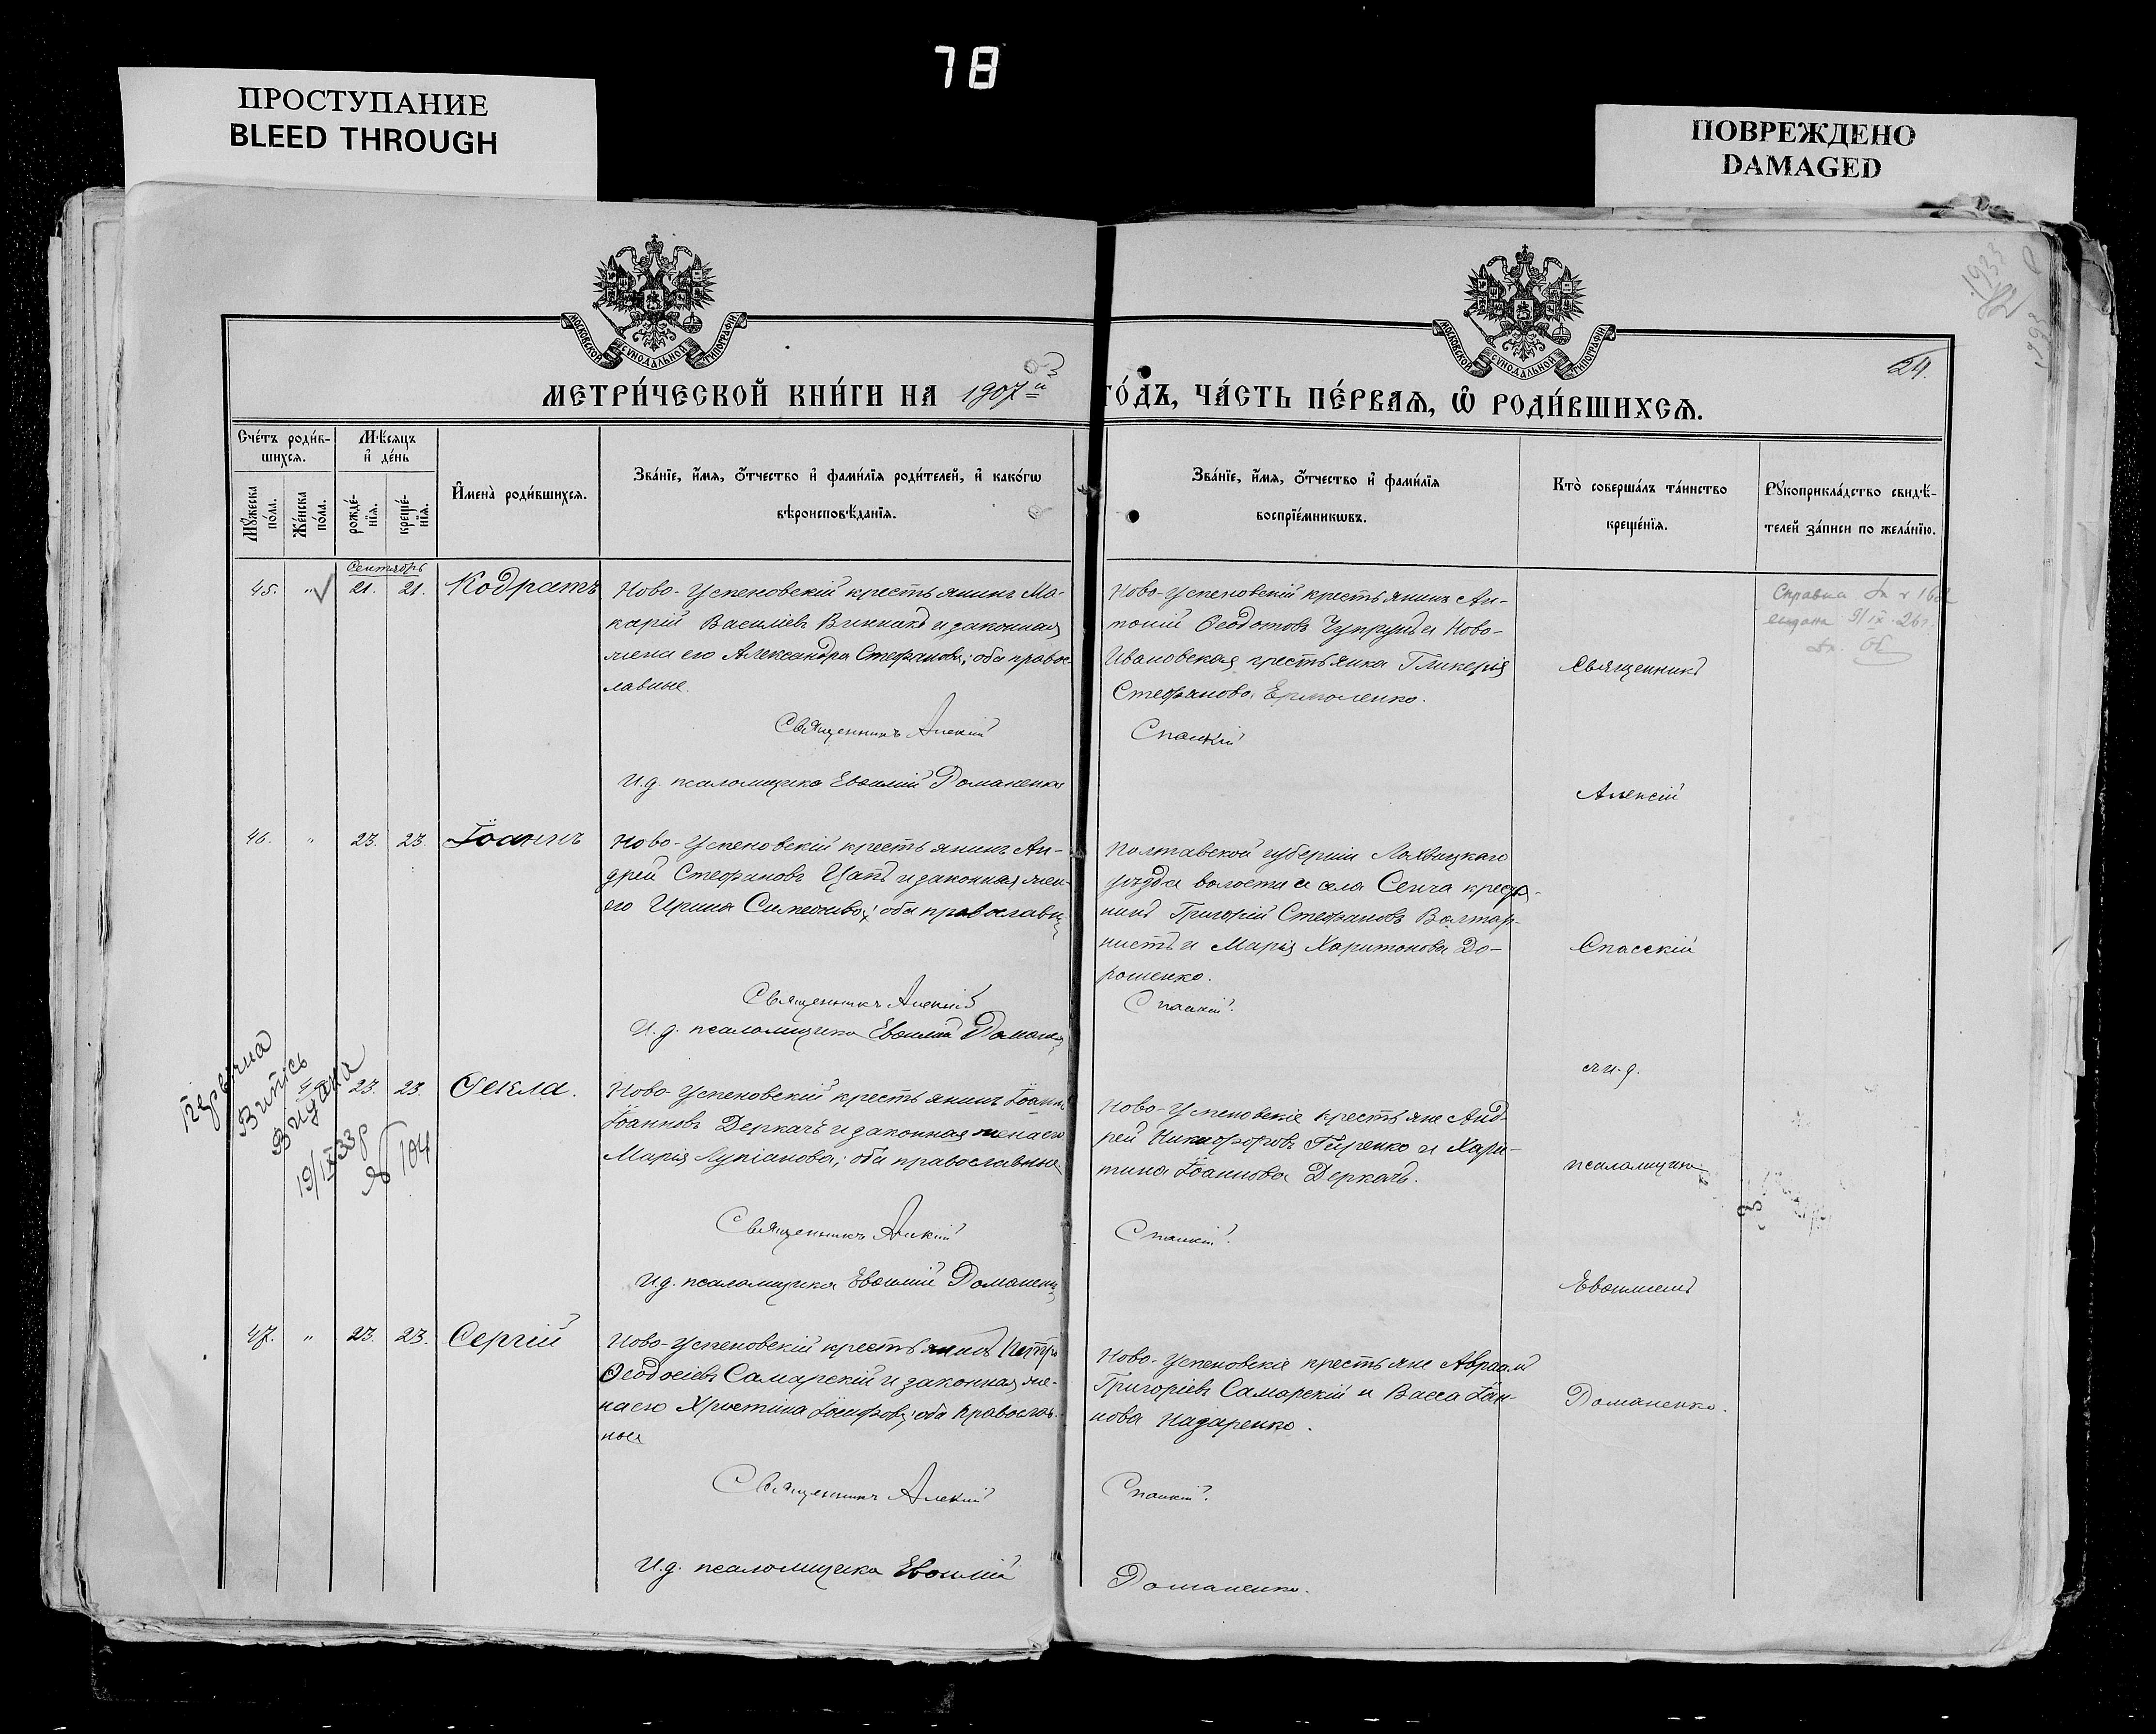 78
ПРОСТУПАНИЕ
BLEED THROUGH
ПОВРЕЖДЕНО
DAMAGED
МОСКОВСКОЙ СѴНОДАЛЬНОЙ ТИПОГРАФІИ
МОСКОВСКОЙ СѴНОДАЛЬНОЙ ТИПОГРАФІИ
1933
24.
МЕТРИ́ЧЕСКОЙ КНИ́ГИ НА 1907й
ГО́ДЪ, ЧА́СТЬ ПЕ́РВАѦ, Ѡ РОДИ́ВШИХСѦ.
Сче́тъ роди́в-
шихсѧ.
Мꙋжеска по́ла.
Же́нска по́ла.
Мѣ́сѧцъ и де́нь
рожде́-
нїѧ.
креще́-
нїѧ.
Имена̀ роди́вшихсѧ.
Зва́нїе, и́мѧ, ѻ́тчество и фами́лїѧ роди́телей, и како́гѡ
вѣроисповѣ́данїѧ.
Зва́нїе, и́мѧ, ѻ́тчество и фами́лїѧ
воспрїе́мникѡвъ.
Кто̀ соверша́лъ та́инство
креще́нїѧ.
Рꙋкоприкла́дство свидѣ́-
телей за́писи по жела́нїю.
Сентябрь
45. " 21. 21. Кодратъ
Ново-Успеновскій крестьянинъ Ма-
карій Василіевъ Винникъ и законная
жена его Александра Стефанова; оба правос-
лавные.
Священникъ Алексій
И.д. псаломщика Евѳимій Доманенко
Ново-Успеновскій крестьянинъ Ан-
тоній Ѳеодотовъ Чупрунъ и Ново-
Ивановская крестьянка Гликерія
Стефанова Ермоленко.
Спасскій
Справка
выдана 9/IX 26 г.
46. " 23. 23. Іоаннъ
Ново-Успеновскій крестьянинъ Ан-
дрей Стефановъ Цапъ и законная жен-
его Ирина Симеонова; оба православн
Священникъ Алексій
И.д. псаломщика Евѳимій Доманен
Полтавской губерніи Лохвицкаго
уѣзда волости и села Сенча крест
нинъ Григорій Стефановъ
и Марія Харитонова До-
рошенко.
Спасскій.
Первична
Витись
Видана
19/IX 33 р
№ 104
23. 23. Ѳекла.
Ново-Успеновскій крестьянинъ Іоаннъ
Іоанновъ Деркачъ и законная жена его
Марія Лупіанова; оба православные.
Священникъ Алексій
И.д. псаломщика Евѳимій Доманенко
Ново-Успеновскіе крестьяне Анд-
рей Никифоровъ Гиренко и Хари-
тина Іоаннова Деркачъ.
Спасскій.
47. " 23. 23. Сергій
Ново-Успеновскій крестьянинъ Петръ
Ѳеодосіевъ Самарскій и законная же-
на его Христина Іосифова; оба православ-
ные
Священникъ Алексій
И.д. псаломщика Евѳимій
Ново-Успеновскіе крестьяне Авраамъ
Григоріевъ Самарскій и Васса Іоан-
нова Назаренко.
Спасскій.
Доманенко.
Священникъ
Алексій
Спасскій
и и.д.
псаломщика
Евѳиміемъ
Доманенко.